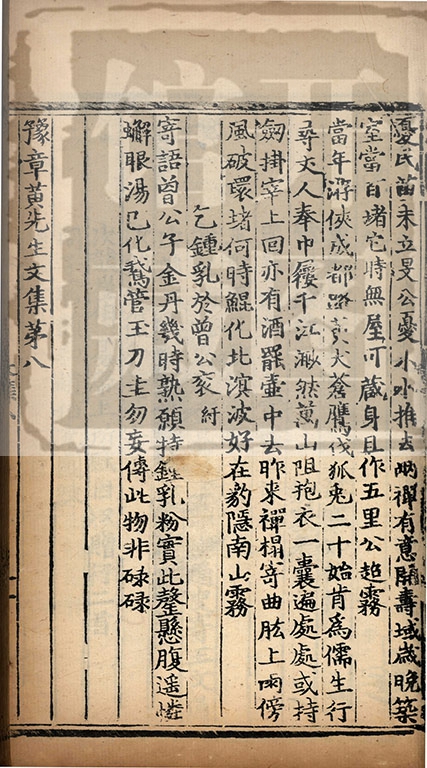 憂民苗未立旻公憂小水推去兩禪有意開壽域歲晚築
室當百堵它時無屋可藏身且作五里公超霧
當年游俠成都路黃犬蒼鷹伐狐兎二十始肯爲儒生行
尋丈人奉巾屨千江渺然萬山阻抱衣一囊遍處處或持
劒掛宰上回亦有酒罷壺中去昨來禪榻寄曲肱上雨傍
風破環堵何時鯤化北溟波好在豹隱南山霧
乞鍾乳於曾公衮 紆
寄語曾公子金丹幾時熟願持鍾乳粉實此罄懸腹遥憐
蠏眼湯已化鵞管玉刀圭勿妄傳此物非碌碌
豫章黃先生文集第八